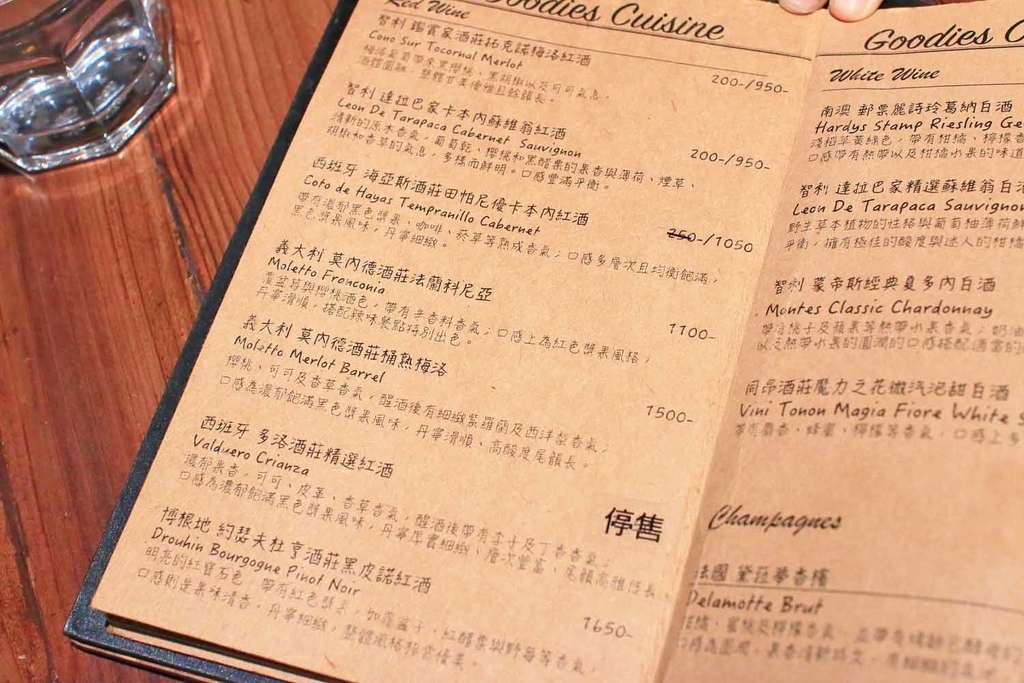 Goodies Cuisine
Red Wine
智利 鑑賞家酒莊拓克諾梅洛紅酒
Cono Sur Tocornal Merlot
200-/950-
梅洛葡萄帶來黑櫻桃、黑胡椒以及可可氣息，
酒體圓融，整體甘美優雅且餘韻長。
智利 達拉巴家卡本內蘇維翁紅酒
Leon De Tarapaca Cabernet Sauvignon
200-/950-
清新的原木香氣，葡萄乾、櫻桃和黑醋栗的果香與薄荷、煙草、
胡椒和香草的氣息，多樣而鮮明。口感豐滿平衡。
西班牙 海亞斯酒莊田帕尼優卡本內紅酒
Coto de Hayas Tempranillo Cabernet
250-/1050
帶有濃郁黑色漿果、咖啡、菸草等熟成香氣；口感多層次且均衡飽滿，
黑色漿果風味，丹寧細緻。
義大利 莫內德酒莊法蘭科尼亞
Moletto Franconia
1100-
覆盆莓與櫻桃酒色，帶有辛香料香氣；口感上為紅色漿果風格，
丹寧滑順，搭配辣味餐點特別出色。
義大利 莫內德酒莊桶熟梅洛
Moletto Merlot Barrel
1500-
櫻桃、可可及香草香氣，醒酒後有細緻紫羅蘭及西洋梨香氣，
口感為濃郁飽滿黑色漿果風味，丹寧滑順、高酸度尾韻長。
西班牙 多洛酒莊精選紅酒
Valduero Crianza
停售
濃郁果香，可可、皮革、香草香氣，醒酒後帶有李子及丁香香氣，
口感為濃郁飽滿黑色漿果風味，丹寧厚實細緻、層次豐富、尾韻高雅悠長
博根地 約瑟夫杜亨酒莊黑皮諾紅酒
Drouhin Bourgogne Pinot Noir
1650-
明亮的紅寶石色，帶有紅色漿果，如覆盆子、紅醋栗與野莓等香氣，
口感則是果味清香，丹寧細緻，整體風格輕盈優美。
Goodies C
White Wine
南澳 郵票麗詩玲葛納白酒
Hardys Stamp Riesling Ge
淺稻草黃綠色，帶有柑橘、檸檬香
口感帶有熱帶以及柑橘水果的味道
智利 達拉巴家精選蘇維翁白酒
Leon De Tarapaca Sauvignon
野生草本植物的性格與葡萄柚薄荷鮮
平衡，擁有極佳的酸度與迷人的柑橘
智利 蒙帝斯經典夏多內白酒
Montes Classic Chardonnay
帶有桃子及蘋果等熱帶水果香氣；奶油
以及熱帶水果的圓潤的口感搭配適當的
同昂酒莊魔力之花微汽泡甜白酒
Vini Tonon Magia Fiore White S
帶有麝香、蜂蜜、檸檬等香氣，口感上多
Champagnes
法國 黛菈夢香檳
Delamotte Brut